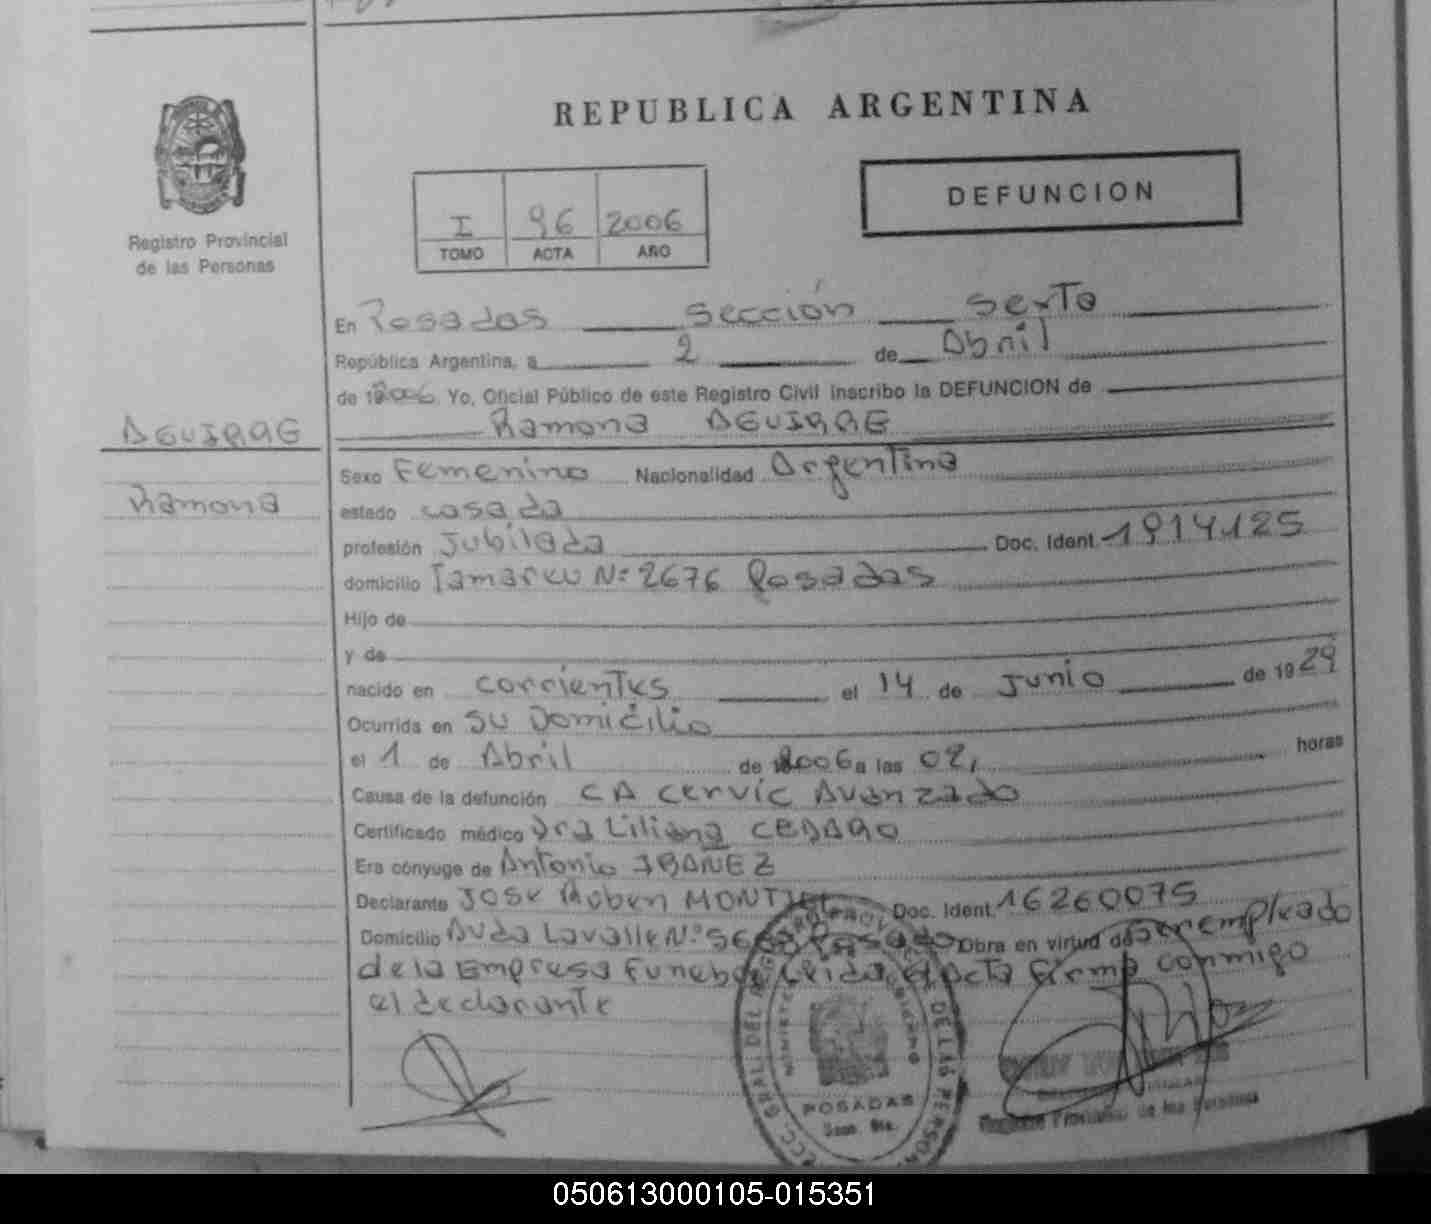 REPUBLICA ARGENTINA
DEFUNCION
I 96 2006
TOMO ACTA AÑO
Registro Provincial
de las Personas
En Posadas sección sexta
República Argentina, a 2 de Abril
de 2006 Yo, Oficial Público de este Registro Civil inscribo la DEFUNCION de
AGUIRRE
Ramona AGUIRRE
Sexo Femenino Nacionalidad Argentina
Ramona
estado casada
profesión Jubilada Doc. Ident. 1914125
domicilio Nº 2676 Posadas
Hijo de
y de
nacido en corrientes el 14 de Junio de 1929
Ocurrida en su Domicilio
el 1 de Abril de 2006 a las 02, horas
Causa de la defunción CA cervic Avanzado
Certificado médico Dra Liliana
Era cónyuge de Antonio IBANEZ
Declarante José Ruben MONTIEL Doc. Ident. 16260075
Domicilio Avda Lavalle Nº Posadas Obra en virtud de ser empleado
de la Empresa Funebre acta firma conmigo
el declarante
POSADAS
Registro Provincial de las Personas
050613000105-015351